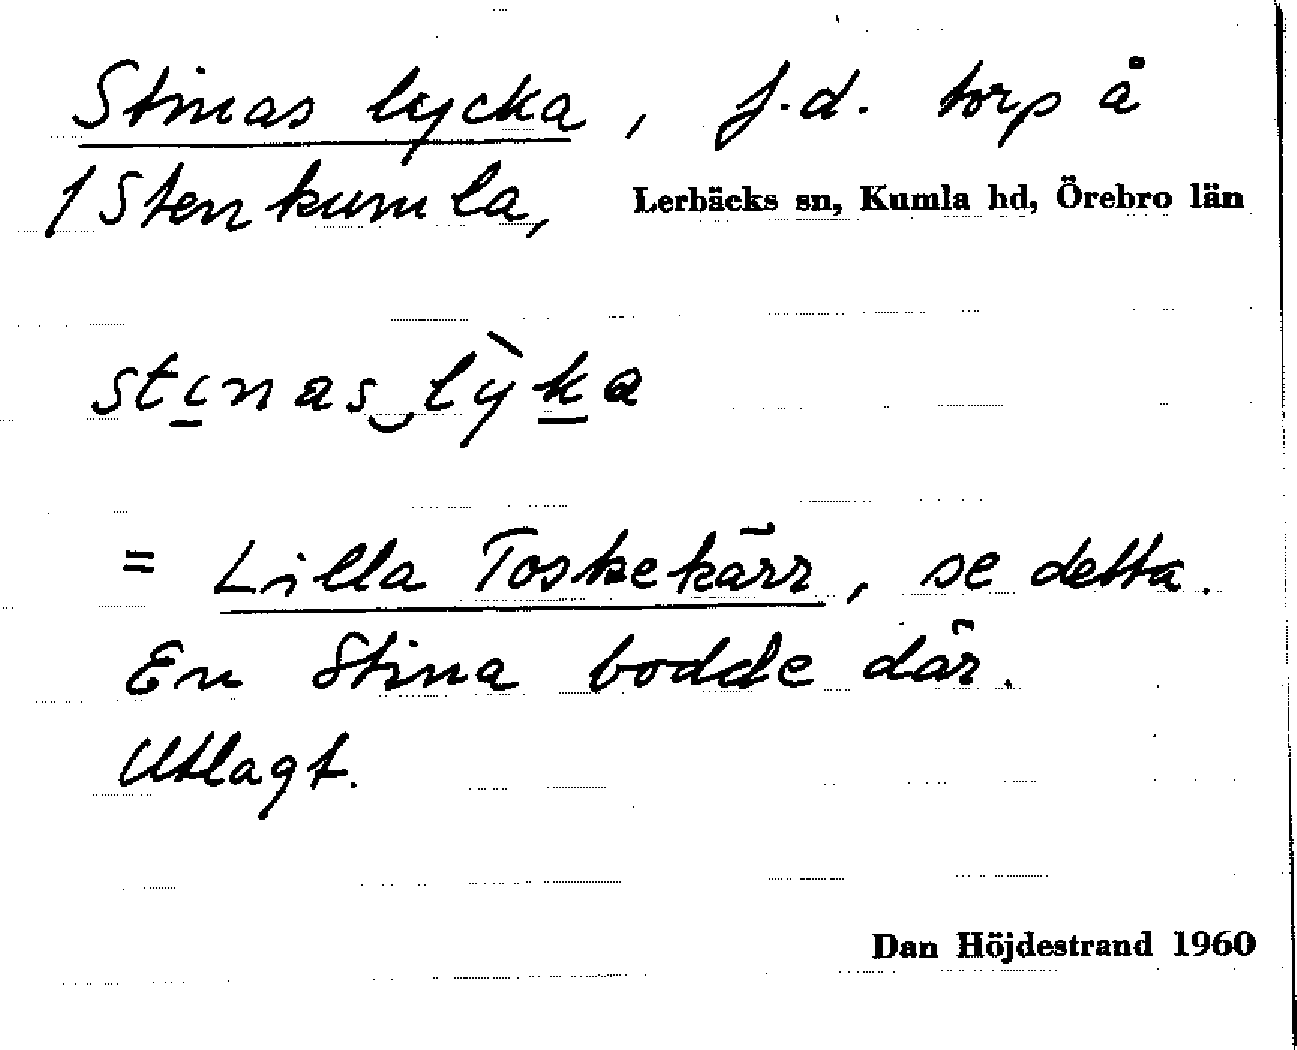 Stinas lycka, f.d. torp å
1 Stenkumla, Lerbäcks sn, Kumla hd, Örebro län
stinas‿lỳka
= Lilla Toskekärr, se detta.
En Stina bodde där.
Utlagt.
Dan Höjdestrand 1960